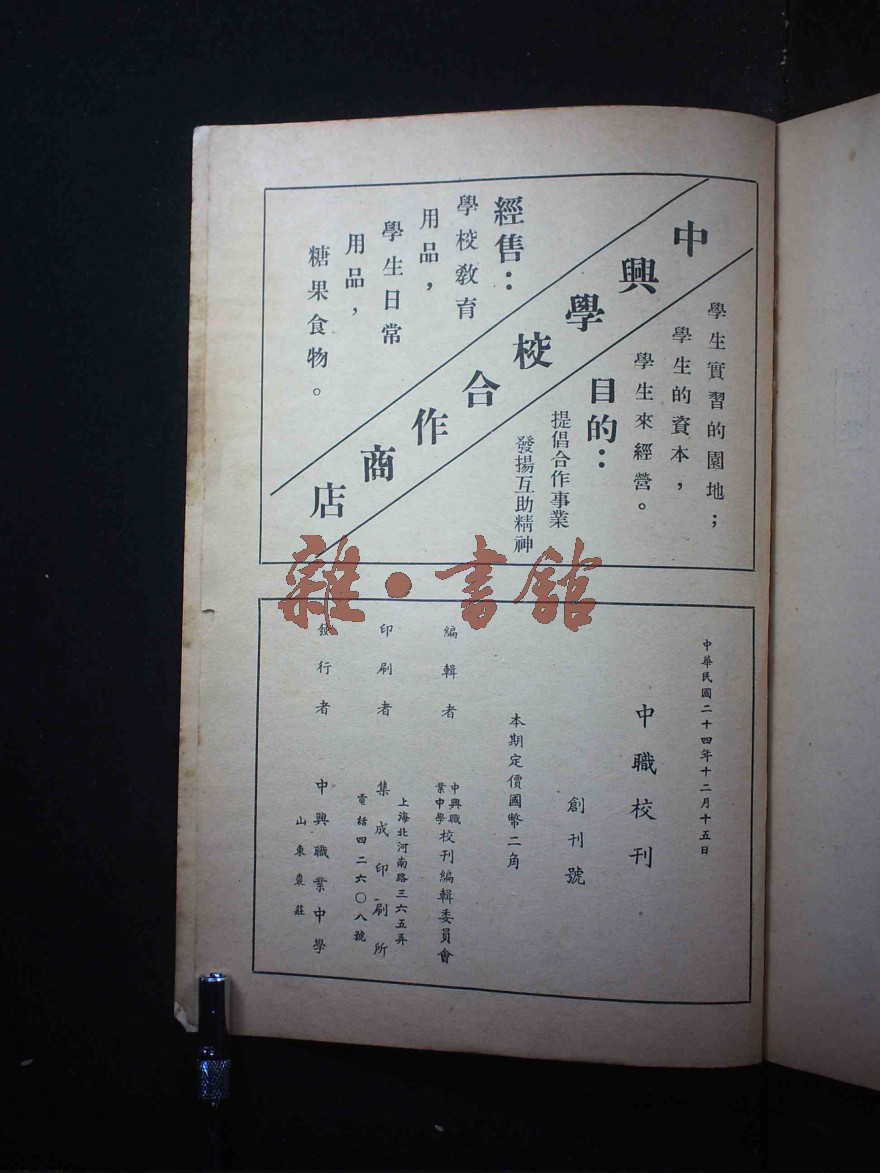 中興學校合作商店
學生實習的園地；
學生的資本，
學生來經營。
目的：
提倡合作事業
發揚互助精神
經售：
學校教育
用品，
學生日常
用品，
糖果食物。
中華民國二十四年十二月十五日
中職校刊
創刊號
本期定價國幣二角
編輯者 中興職業中學校刊編輯委員會
印刷者 集成印刷所
上海北河南路三六五弄
電話四二六〇八號
發行者 中興職業中學
山東棗莊
雜·書館